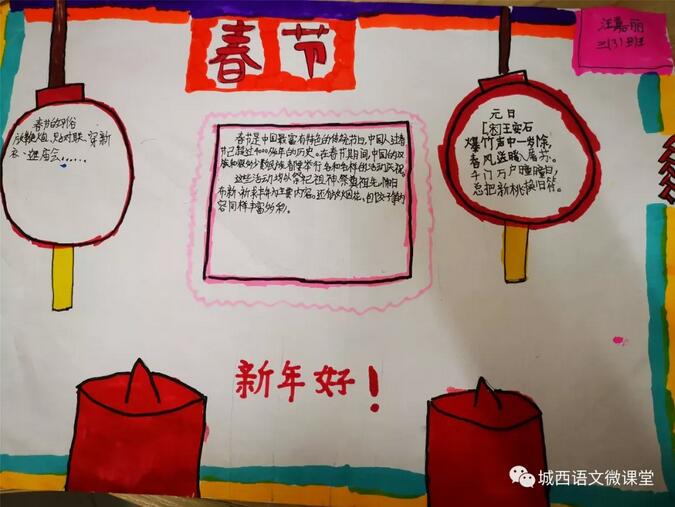 春节
汪嘉丽
三(3)班
春节的习俗
放鞭炮、贴对联、穿新
衣、逛庙会……
春节是中国最富有特色的传统节日,中国人过春
节已超过4000多年的历史。在春节期间,中国的汉
族和很多少数民族都要举行各种各样的活动庆祝,
这些活动均以祭祀祖神、祭奠祖先、除旧
布新、祈求丰年为主要内容。还有放烟花、包饺子等内
容同样丰富多彩。
元日
[宋]王安石
爆竹声中一岁除,
春风送暖入屠苏。
千门万户曈曈日,
总把新桃换旧符。
新年好!
城西语文微课堂